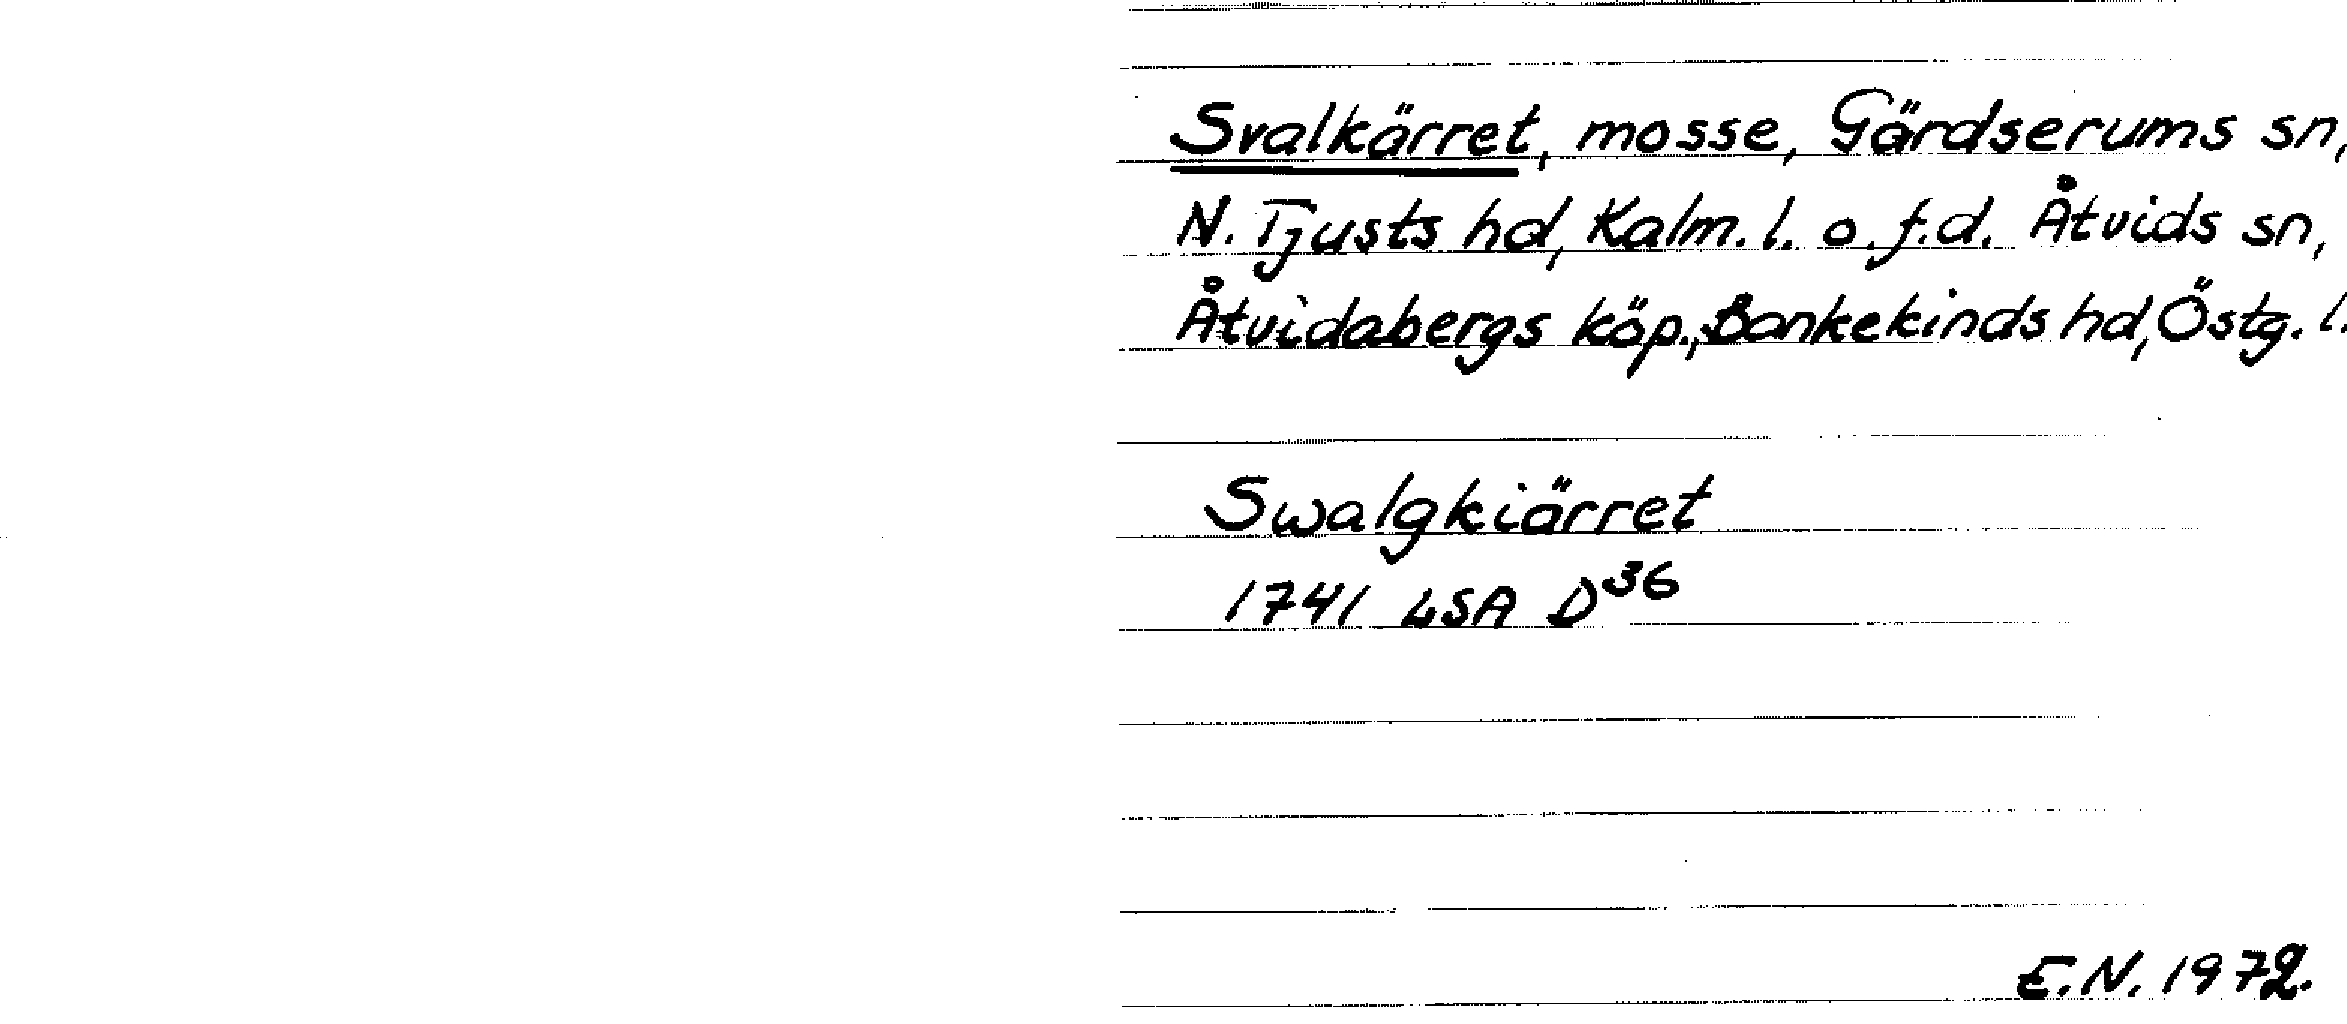 Svalkärret, mosse, Gärdserums sn,
N. Tjusts hd, Kalm. l. o. f.d. Åtvids sn,
Åtvidabergs köp., Bankekinds hd, Östg. l.
Swalgkiärret
1741 LSA D36
E.N. 1972.